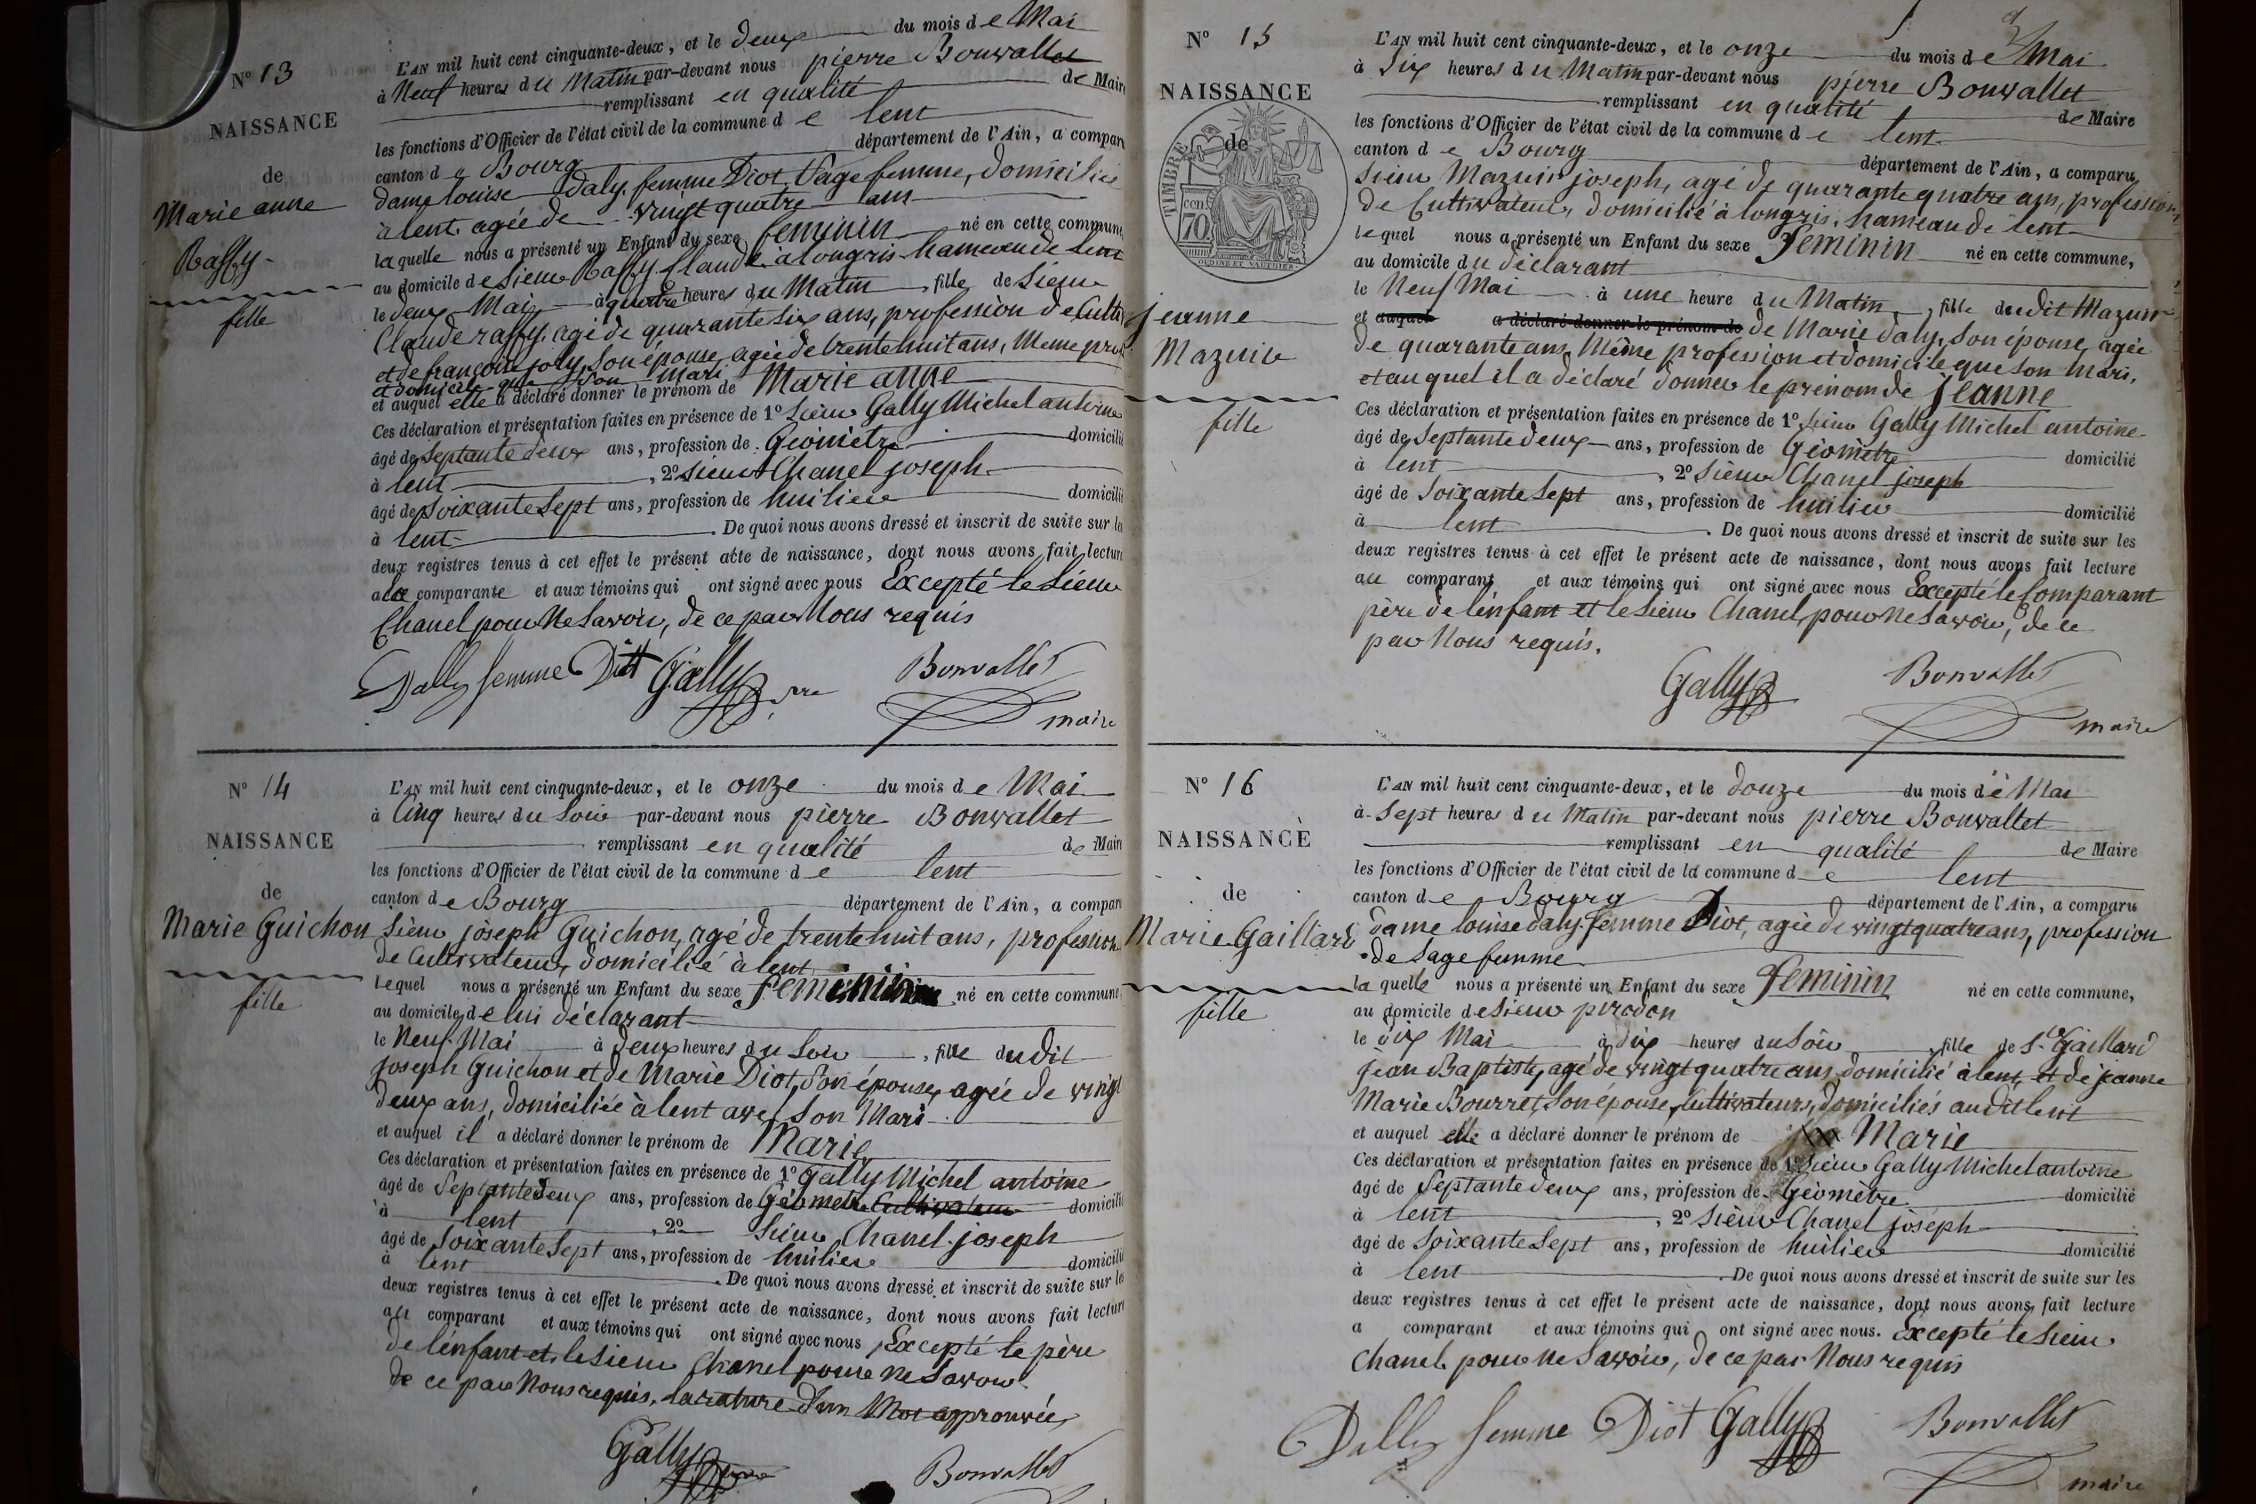 N° 13
NAISSANCE
de
Marie anne
Raffy
fille
L'AN mil huit cent cinquante-deux, et le deux du mois de Mai
à Neuf heures du Matin par-devant nous pierre Bonvallet
remplissant en qualité de Maire
les fonctions d'Officier de l'état civil de la commune de lent
canton de Bourg département de l'Ain, a comparu
dame louise daly, femme Diot, Sage femme, domiciliée
à lent, agée de vingt quatre ans
laquelle nous a présenté un Enfant du sexe feminin né en cette commune,
au domicile de Sieur Raffy Claude à longris hameau de lent
le deux Mai à quatre heures du Matin, fille de Sieur
Claude raffy, agé de quarante six ans, profession de Culti
et de françoise joly, Son épouse, agée de trente huit ans, Meme prof
et domicile que Son mari
et auquel elle a déclaré donner le prénom de Marie anne
Ces déclaration et présentation faites en présence de 1° Sieur Gally Michel antoine
âgé de Septante deux ans, profession de Géomètre domicilié
à lent, 2° Sieur Chanel joseph
âgé de Soixante Sept ans, profession de huilier domicilié
à lent. De quoi nous avons dressé et inscrit de suite sur les
deux registres tenus à cet effet le présent acte de naissance, dont nous avons fait lecture
a la comparante et aux témoins qui ont signé avec nous Excepté le Sieur
Chanel pour Ne Savoir, de ce par Nous requis
Dally femme Diot Gally Bonvallet
maire
N° 14
NAISSANCE
de
Marie Guichon
fille
L'AN mil huit cent cinquante-deux, et le onze du mois de Mai
à Cinq heures du Soir par-devant nous pierre Bonvallet
remplissant en qualité de Maire
les fonctions d'Officier de l'état civil de la commune de lent
canton de Bourg département de l'Ain, a comparu
Sieur joseph Guichon, agé de trente huit ans, profession
de Cultivateur, domicilié à lent
lequel nous a présenté un Enfant du sexe feminin né en cette commune,
au domicile de lui déclarant
le Neuf Mai à deux heures du Soir, fille du dit
joseph Guichon et de Marie Diot, Son épouse, agée de vingt
deux ans, domiciliée à lent avec Son Mari
et auquel il a déclaré donner le prénom de Marie
Ces déclaration et présentation faites en présence de 1° Gally Michel antoine
âgé de Septante deux ans, profession de Géomètre Cultivateur domicilié
à lent, 2° Sieur Chanel joseph
âgé de Soixante Sept ans, profession de huilier domicilié
à lent. De quoi nous avons dressé et inscrit de suite sur les
deux registres tenus à cet effet le présent acte de naissance, dont nous avons fait lecture
au comparant et aux témoins qui ont signé avec nous, Excepté le père
de l'énfant et le Sieur Chanel pour Ne Savoir
de ce par Nous requis, la rature d'un Mot approuvée
Gally Bonvallet
N° 15
NAISSANCE
de
TIMBRE
70
OUDINÉ ET VAUTHIER
jeanne
Mazuir
fille
L'AN mil huit cent cinquante-deux, et le onze du mois de Mai
à Six heures du Matin par-devant nous pierre Bonvallet
remplissant en qualité de Maire
les fonctions d'Officier de l'état civil de la commune de lent
canton de Bourg département de l'Ain, a comparu
Sieur Mazuir joseph, agé de quarante quatre ans, profession
de Cultivateur, domicilié à longris, hameau de lent
lequel nous a présenté un Enfant du sexe Feminin né en cette commune,
au domicile du déclarant
le Neuf Mai à une heure du Matin, fille du dit Mazuir
et auquel a déclaré donner le prénom de de Marie daly, Son épouse, agée
de quarante ans, Même profession et domicile que son Mari,
et auquel il a déclaré donner le prenom de jeanne
Ces déclaration et présentation faites en présence de 1° Sieur Gally Michel antoine
âgé de Septante deux ans, profession de Géomètre domicilié
à lent, 2° Sieur Chanel joseph
âgé de Soixante Sept ans, profession de huilier domicilié
à lent. De quoi nous avons dressé et inscrit de suite sur les
deux registres tenus à cet effet le présent acte de naissance, dont nous avons fait lecture
au comparant et aux témoins qui ont signé avec nous Excepté le Comparant
père de l'énfant et le Sieur Chanel, pour Ne Savoir, de ce
par Nous requis.
Gally Bonvallet
maire
N° 16
NAISSANCE
de
Marie Gaillard
fille
L'AN mil huit cent cinquante-deux, et le douze du mois de Mai
à Sept heures du Matin par-devant nous pierre Bonvallet
remplissant en qualité de Maire
les fonctions d'Officier de l'état civil de la commune de lent
canton de Bourg département de l'Ain, a comparu
dame louise daly, femme Diot, agée de vingt quatre ans, profession
de Sage femme
la quelle nous a présenté un Enfant du sexe Feminin né en cette commune,
au domicile de Sieur prodon
le dix Mai à dix heures du Soir, fille de Sr Gaillard
jean Baptiste, agé de vingt quatre ans, domicilié à lent, et de jeanne
Marie Bourret, Son épouse, Cultivateurs, domiciliés au dit lent
et auquel elle a déclaré donner le prénom de Marie
Ces déclaration et présentation faites en présence de 1° Sieur Gally Michel antoine
âgé de Septante deux ans, profession de Géomètre domicilié
à lent, 2° Sieur Chanel joseph
âgé de Soixante Sept ans, profession de huilier domicilié
à lent. De quoi nous avons dressé et inscrit de suite sur les
deux registres tenus à cet effet le présent acte de naissance, dont nous avons fait lecture
a comparant et aux témoins qui ont signé avec nous. Excepté le Sieur
Chanel pour Ne Savoir, de ce par Nous requis
Dally femme Diot Gally Bonvallet
maire